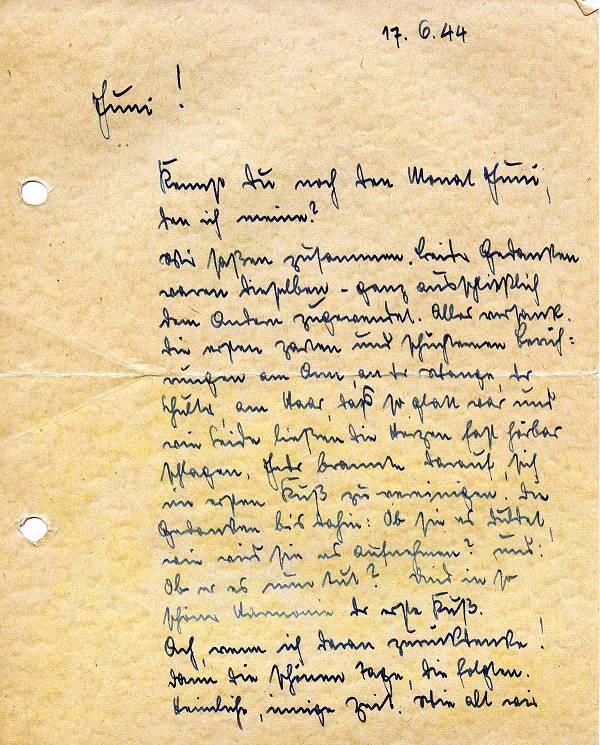 17. 6. 44
Juni!
Kennst Du noch den Monat Juni,
den ich meine?
Wir saßen zusammen. Beider Gedanken
waren dieselben - ganz ausschließlich
dem Andern zugewendet. Alles versank.
Die ersten zarten und schüchternen Berüh=
rungen am Arm, an der Wange, der
Schulter am Haar, daß so glatt war und
wie Seide ließen die Herzen fast hörbar
schlagen. Jeder brannte darauf, sich
im ersten Kuß zu vereinigen. Die
Gedanken bis dahin: Ob sie es duldet,
wie wird sie es aufnehmen? und:
Ob er es nun tut? Und in so
schöner Harmonie der erste Kuß.
Ach, wenn ich daran zurückdenke!
Dann die schönen Tage, die folgten.
Heimliche, innige Zeit. Wie alt wir